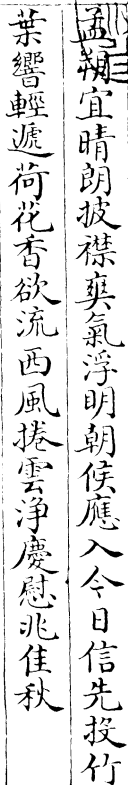 孟朔宜晴朗披襟爽氣浮明朝候應入今日信先投竹
葉響輕遞荷花香欲流西風捲雲淨慶慰兆佳秋